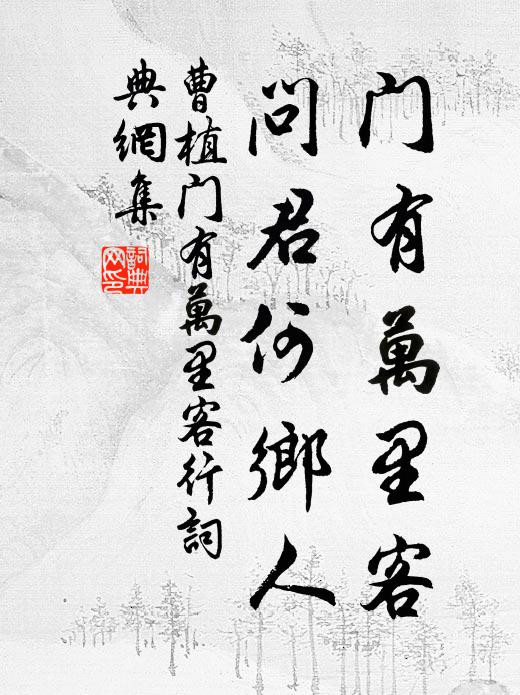 門有萬里客
問君何鄉人
曹植門有萬里客行詞
典網集
詞典
網印